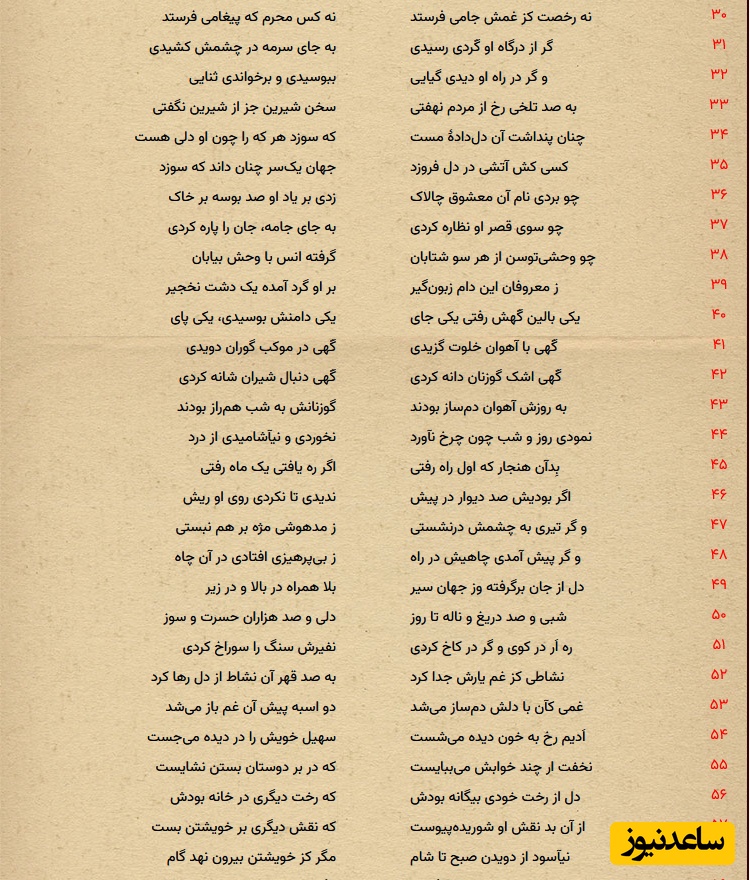 ۳۰ نه رخصت کز غمش جامی فرستد نه کس محرم که پیغامی فرستد
۳۱ گر از درگاه او گردی رسیدی به جای سرمه در چشمش کشیدی
۳۲ و گر در راه او دیدی گیایی ببوسیدی و برخواندی ثنایی
۳۳ به صد تلخی رخ از مردم نهفتی سخن شیرین جز از شیرین نگفتی
۳۴ چنان پنداشت آن دل‌دادهٔ مست که سوزد هر که را چون او دلی هست
۳۵ کسی کش آتشی در دل فروزد جهان یک‌سر چنان داند که سوزد
۳۶ چو بردی نام آن معشوق چالاک زدی بر یاد او صد بوسه بر خاک
۳۷ چو سوی قصر او نظاره کردی به جای جامه، جان را پاره کردی
۳۸ چو وحشی‌توسن از هر سو شتابان گرفته انس با وحش بیابان
۳۹ ز معروفان این دام زبون‌گیر بر او گرد آمده یک دشت نخجیر
۴۰ یکی بالین گهش رفتی یکی جای یکی دامنش بوسیدی، یکی پای
۴۱ گهی با آهوان خلوت گزیدی گهی در موکب گوران دویدی
۴۲ گهی اشک گوزنان دانه کردی گهی دنبال شیران شانه کردی
۴۳ به روزش آهوان دم‌ساز بودند گوزنانش به شب هم‌راز بودند
۴۴ نمودی روز و شب چون چرخ نآورد نخوردی و نیآشامیدی از درد
۴۵ بِدآن هنجار که اول راه رفتی اگر ره یافتی یک ماه رفتی
۴۶ اگر بودیش صد دیوار در پیش ندیدی تا نکردی روی او ریش
۴۷ و گر تیری به چشمش درنشستی ز مدهوشی مژه بر هم نبستی
۴۸ و گر پیش آمدی چاهیش در راه ز بی‌پرهیزی افتادی در آن چاه
۴۹ دل از جان برگرفته وز جهان سیر بلا همراه در بالا و در زیر
۵۰ شبی و صد دریغ و ناله تا روز دلی و صد هزاران حسرت و سوز
۵۱ ره اَر در کوی و گر در کاخ کردی نفیرش سنگ را سوراخ کردی
۵۲ نشاطی کز غم یارش جدا کرد به صد قهر آن نشاط از دل رها کرد
۵۳ غمی کآن با دلش دم‌ساز می‌شد دو اسبه پیش آن غم باز می‌شد
۵۴ اَدیم رخ به خون دیده می‌شست سهیل خویش را در دیده می‌جست
۵۵ نخفت ار چند خوابش می‌ببایست که در بر دوستان بستن نشایست
۵۶ دل از رخت خودی بیگانه بودش که رخت دیگری در خانه بودش
از آن بد نقش او شوریده‌پیوست که نقش دیگری بر خویشتن بست
نیآسود از دویدن صبح تا شام مگر کز خویشتن بیرون نهد گام
ساعدنیوز